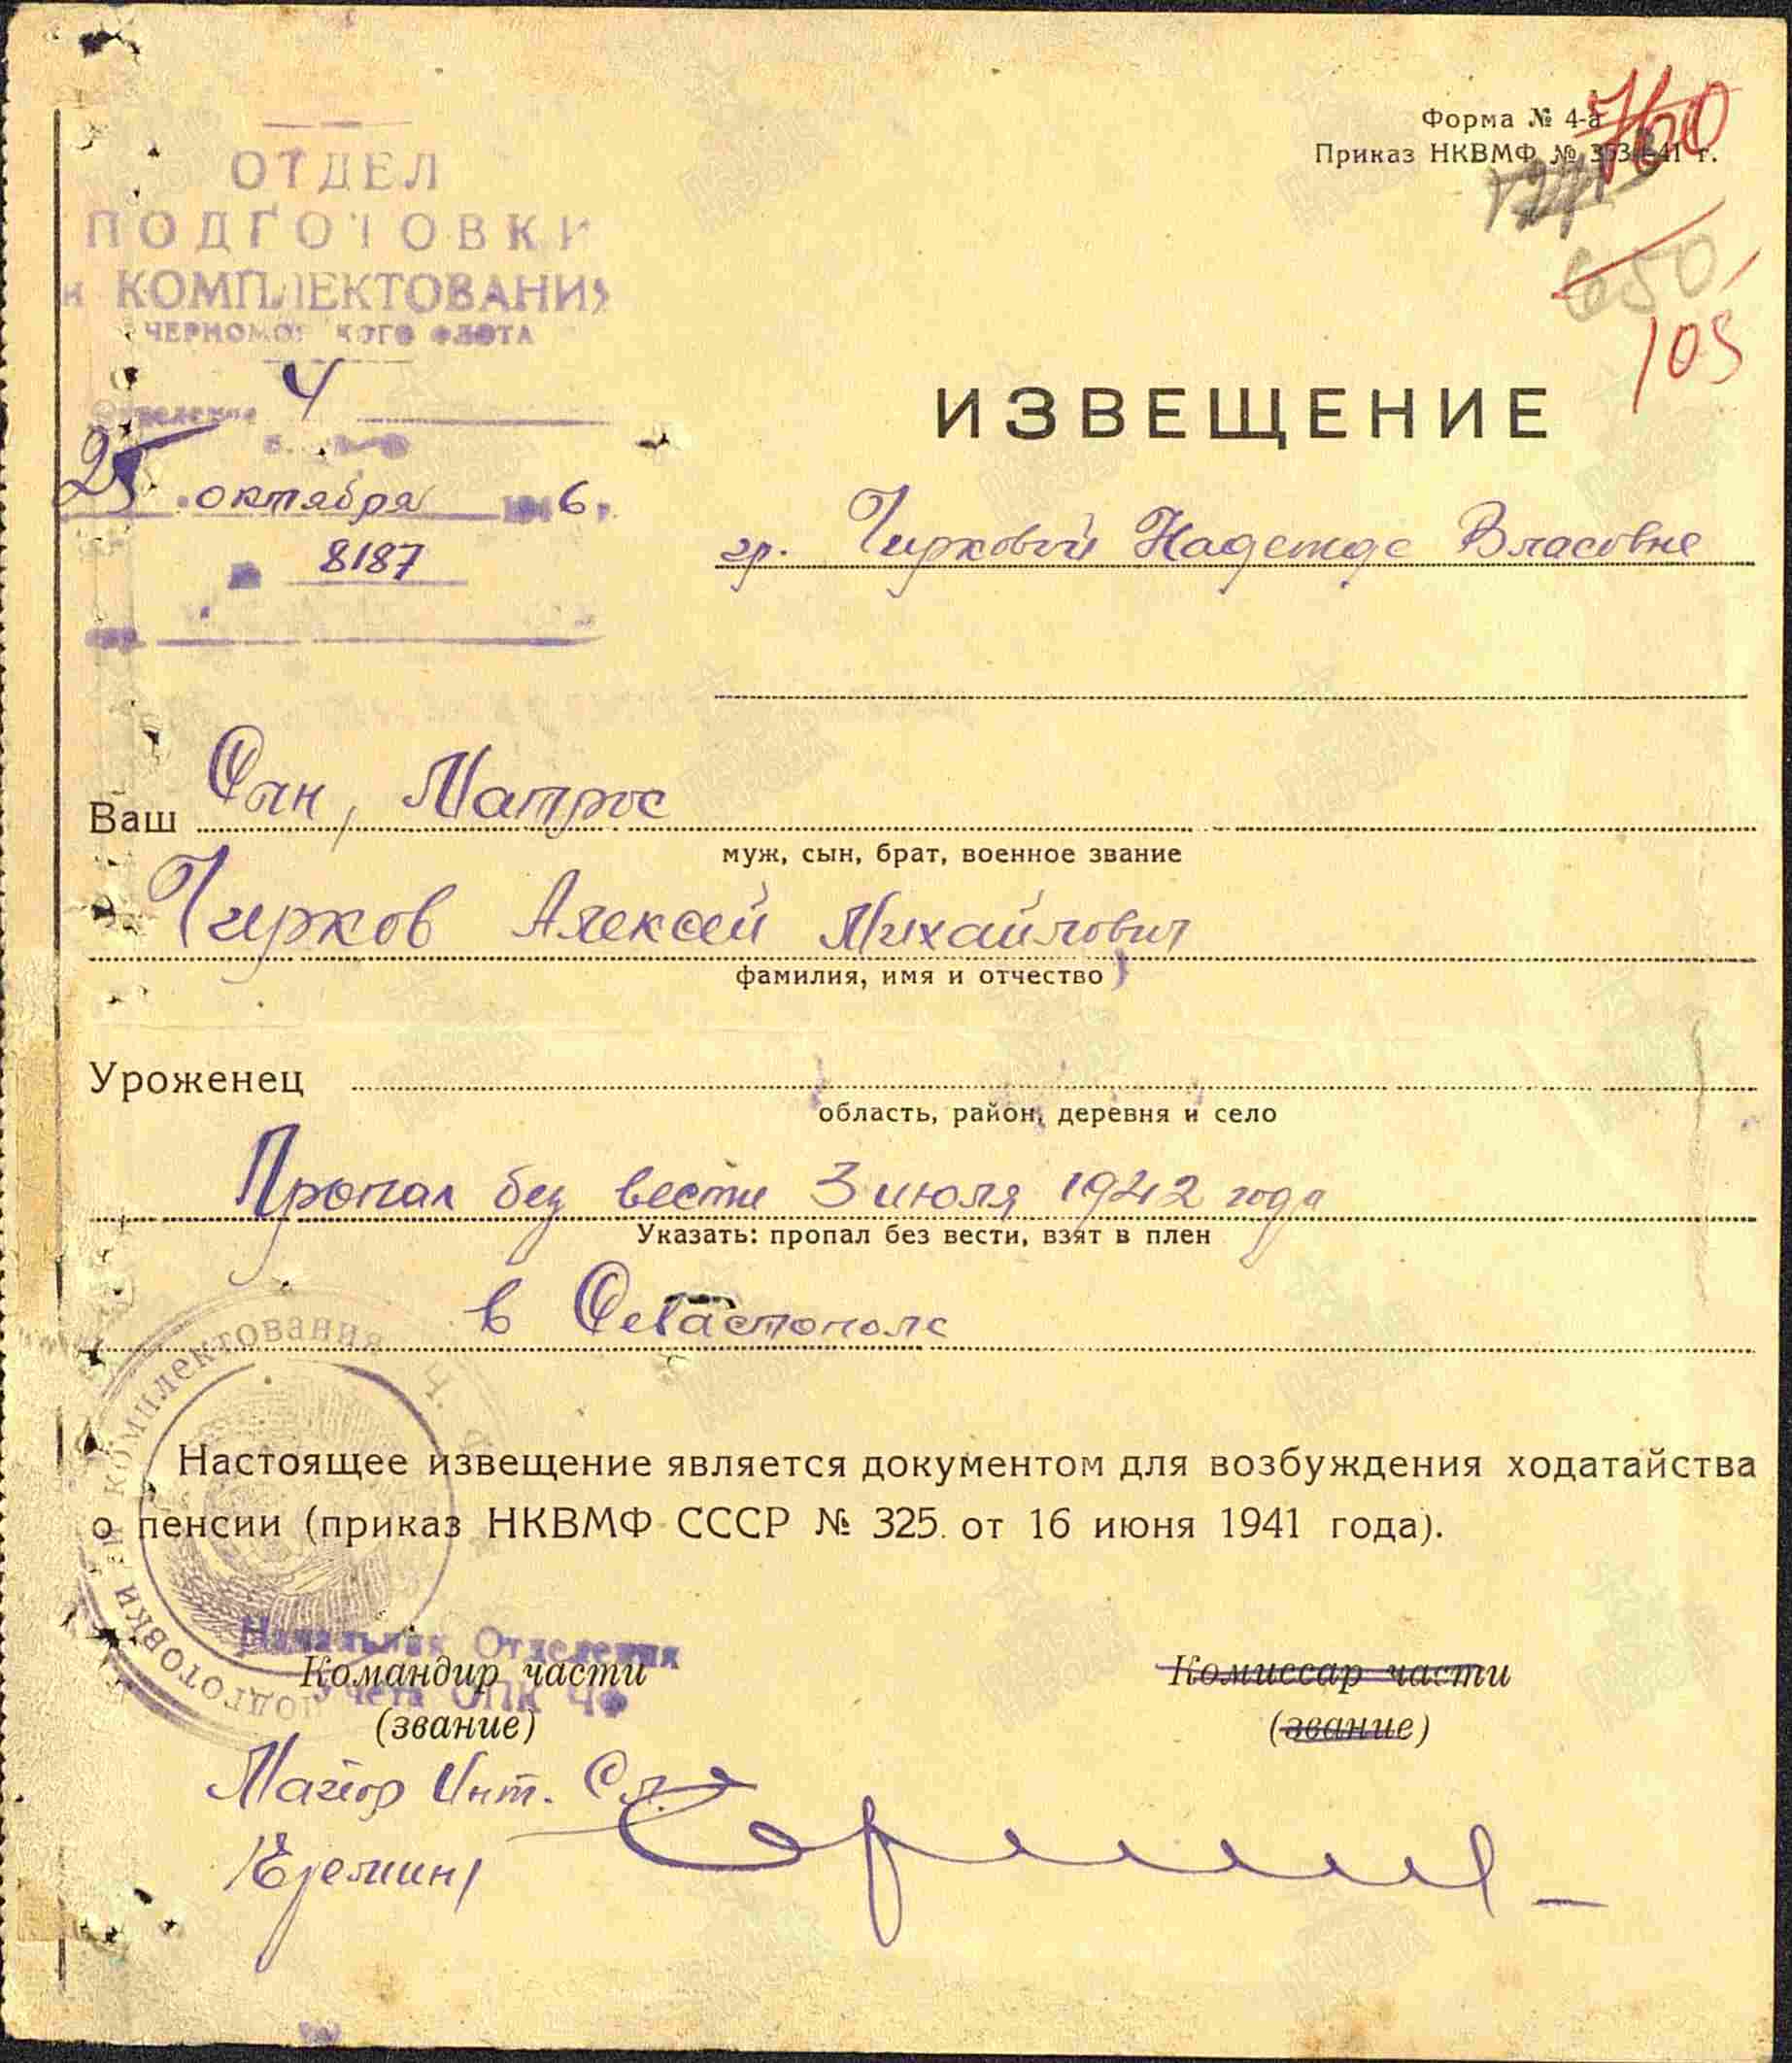 Форма № 4-а
Приказ НКВМФ № 41 г.
760
650
105
ОТДЕЛ
ПОДГОТОВКИ
и КОМПЛЕКТОВАНИЯ
ЧЕРНОМОРСКОГО ФЛОТА
Отделение 4
25 октября 1946 г.
8187
ИЗВЕЩЕНИЕ
гр. Чирковой Надежде Власовне
Ваш Сын, Матрос
муж, сын, брат, военное звание
Чирков Алексей Михайлович
фамилия, имя и отчество
Уроженец
область, район, деревня и село
Пропал без вести 3 июля 1942 года
Указать: пропал без вести, взят в плен
в Севастополе
Настоящее извещение является документом для возбуждения ходатайства
о пенсии (приказ НКВМФ СССР № 325 от 16 июня 1941 года).
подготовки и комплектования Ч.
Начальник Отделения
Командир части
Учета ОПК ЧФ
(звание)
Комиссар части
(звание)
Майор Инт. Сл.
/Еремин/